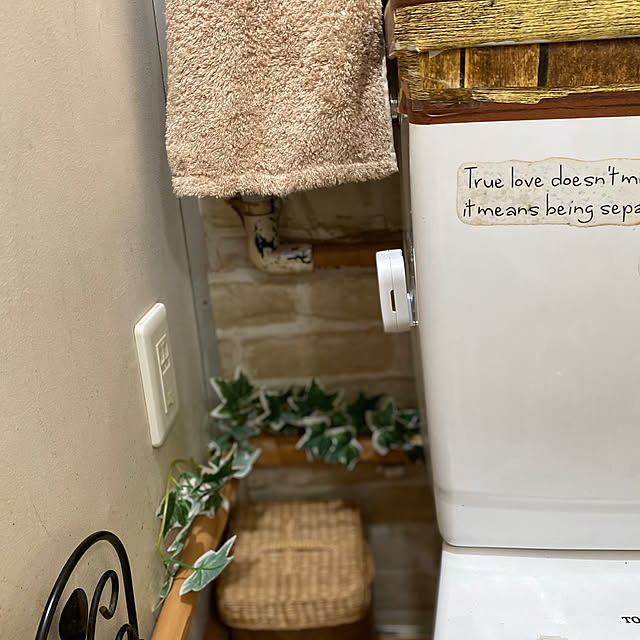 True love doesn't
it means being
TO